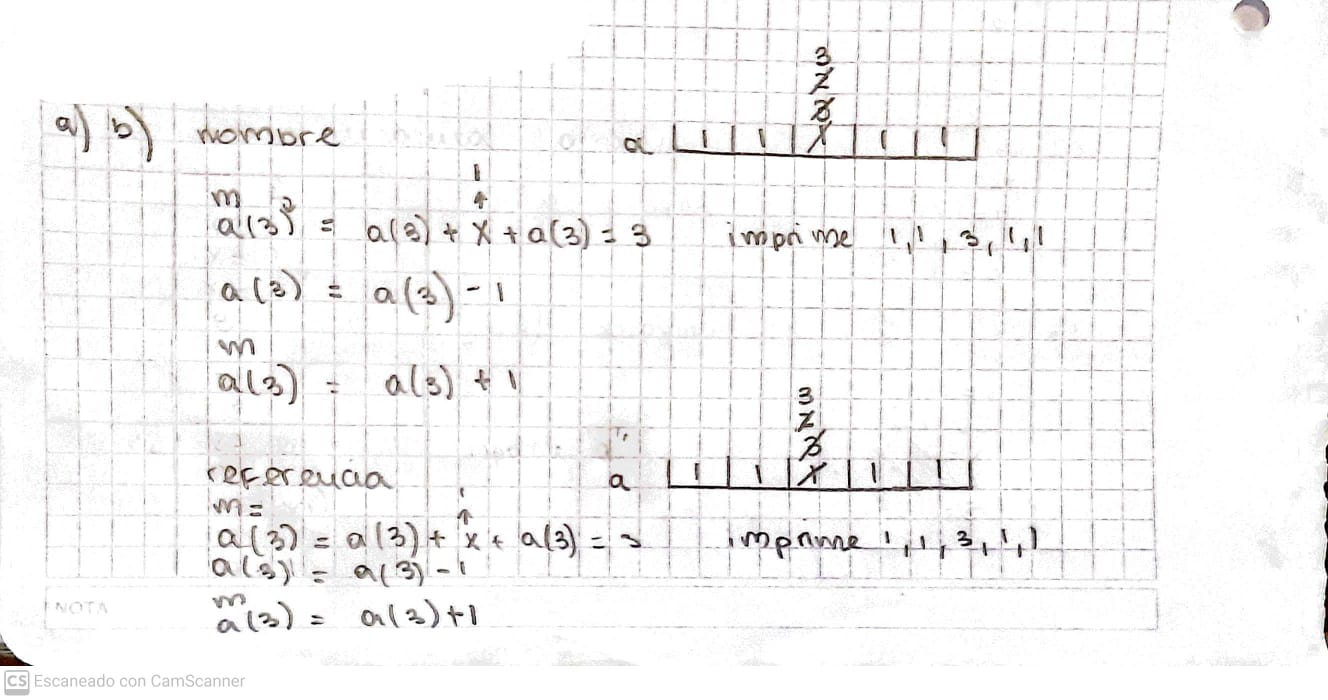 3
2
3
a) b) nombre a 1 1 X 1 1
1
m
a(3) = a(3) + X + a(3) = 3 imprime 1,1,3,1,1
a(3) = a(3) - 1
m
a(3) = a(3) + 1
3
2
3
referencia a 1 1 X 1 1
m =
a(3) = a(3) + x + a(3) = 3 imprime 1,1,3,1,1
a(3) = a(3) - 1
NOTA
m
a(3) = a(3) + 1
CS Escaneado con CamScanner